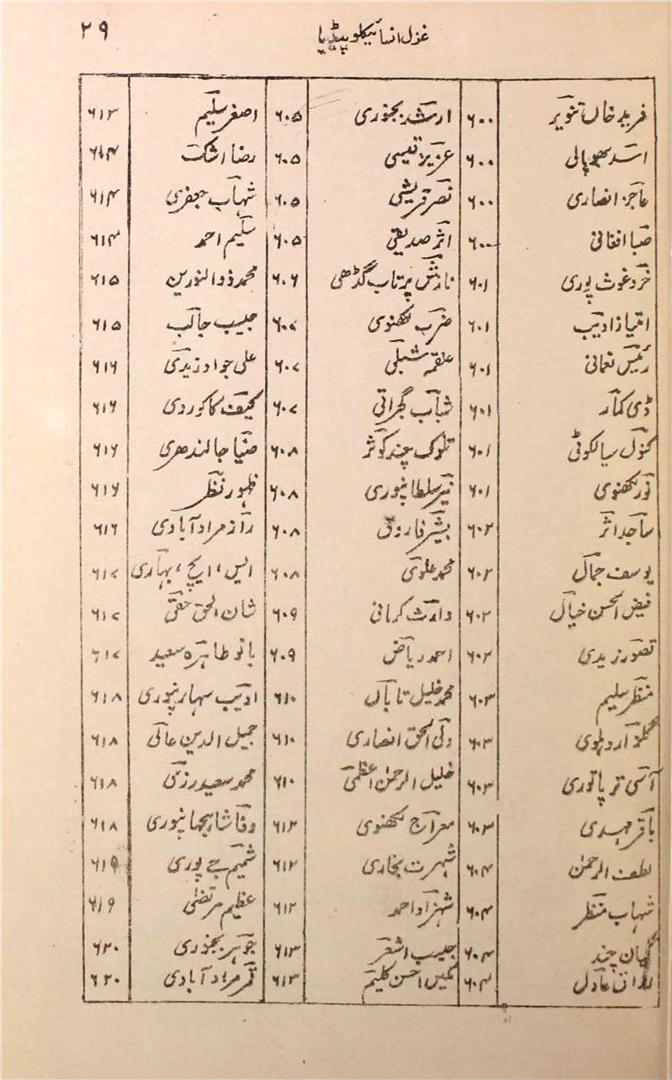 غزل انسائیکلوپیڈیا ۲۹
فرید خاں تنویر ۶۰۰ ارشد بجنوری ۶۰۵ اصغر سلیم ۶۱۳
اسد بھوپالی ۶۰۰ عزیز قیسی ۶۰۵ رضا اشک ۶۱۴
عاجز انصاری ۶۰۰ نصر قریشی ۶۰۵ شہاب جعفری ۶۱۴
صبا افغانی ۶۰۰ اثر صدیقی ۶۰۵ سلیم احمد ۶۱۴
خرد غوث پوری ۶۰۱ نازش پرتاب گڈھی ۶۰۶ محمد ذوالنورین ۶۱۵
امتیاز ادیب ۶۰۱ ضرب لکھنوی ۶۰۷ حبیب جالب ۶۱۵
رئیس نعمانی ۶۰۱ علقمہ شبلی ۶۰۷ علی جواد زیدی ۶۱۶
ڈی کمار ۶۰۱ شباب گجراتی ۶۰۷ کیف کاکوردی ۶۱۶
کنول سیالکوٹی ۶۰۱ تلوک چند کوثر ۶۰۸ ضیا جالندھری ۶۱۶
نور لکھنوی ۶۰۱ نیر سلطانپوری ۶۰۸ ظہور نظر ۶۱۶
ساجد اثر ۶۰۲ بشیر فاروق ۶۰۸ راز مراد آبادی ۶۱۶
یوسف جمال ۶۰۲ محمد علوی ۶۰۸ ایس، ایچ، بہاری ۶۱۷
فیض الحسن خیال ۶۰۲ وارث کرمانی ۶۰۹ شان الحق حقی ۶۱۷
تصور زیدی ۶۰۲ احمد ریاض ۶۰۹ بانو طاہرہ سعید ۶۱۷
منظر سلیم ۶۰۳ محمد خلیل تاباں ۶۱۰ ادیب سہارنپوری ۶۱۸
گلزار دہلوی ۶۰۳ ولی الحق انصاری ۶۱۰ جمیل الدین عالی ۶۱۸
آسی ۶۰۳ خلیل الرحمٰن اعظمی ۶۱۰ محمد سعید رزمی ۶۱۸
باقر مہدی ۶۰۳ معراج لکھنوی ۶۱۲ وفا شاہجہانپوری ۶۱۸
لطف الرحمٰن ۶۰۴ شہرت بخاری ۶۱۲ شمیم جے پوری ۶۱۹
شہاب منظر ۶۰۴ شہزاد احمد ۶۱۲ عظیم مرتضیٰ ۶۱۹
گیان چند ۶۰۴ حبیب اشعر ۶۱۳ جوہر بجنوری ۶۲۰
عادل ۶۰۴ احسن کلیم ۶۱۳ قمر مراد آبادی ۶۲۰